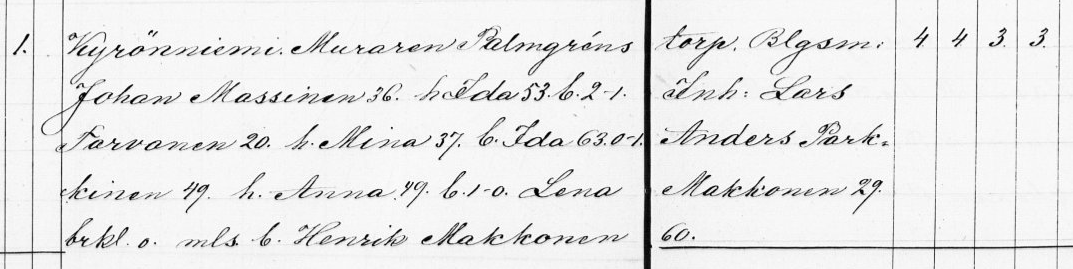 1. Kyrönniemi. Muraren Palmgréns torp. Blgsm: 4 4 3. 3.
Johan Massinen 36. h. Ida 53. b. 2-1. Inh: Lars
Tarvonen 20. h. Mina 37. b. Ida 63. 0-1. Anders Park-
kinen 49. h. Anna 49. b. 1-0. Lena Makkonen 29.
brkl. o. mls. b. Henrik Makkonen 60.